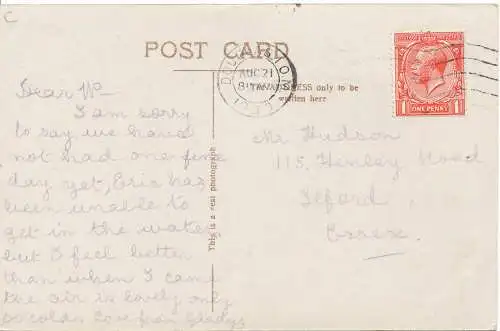 C
POST CARD
DOUGLAS I O M
AUG 21
ADDRESS only to be
written here
ONE PENNY
1 1
Dear
I am sorry
to say we have
not had one fine
day yet, Eric has
been unable to
get in the water,
but I feel better
than when I came
the air is lovely only
so cold. Love from Gladys
This is a real photograph
Mr Hudson
115, Henley Road
Ilford
Essex.